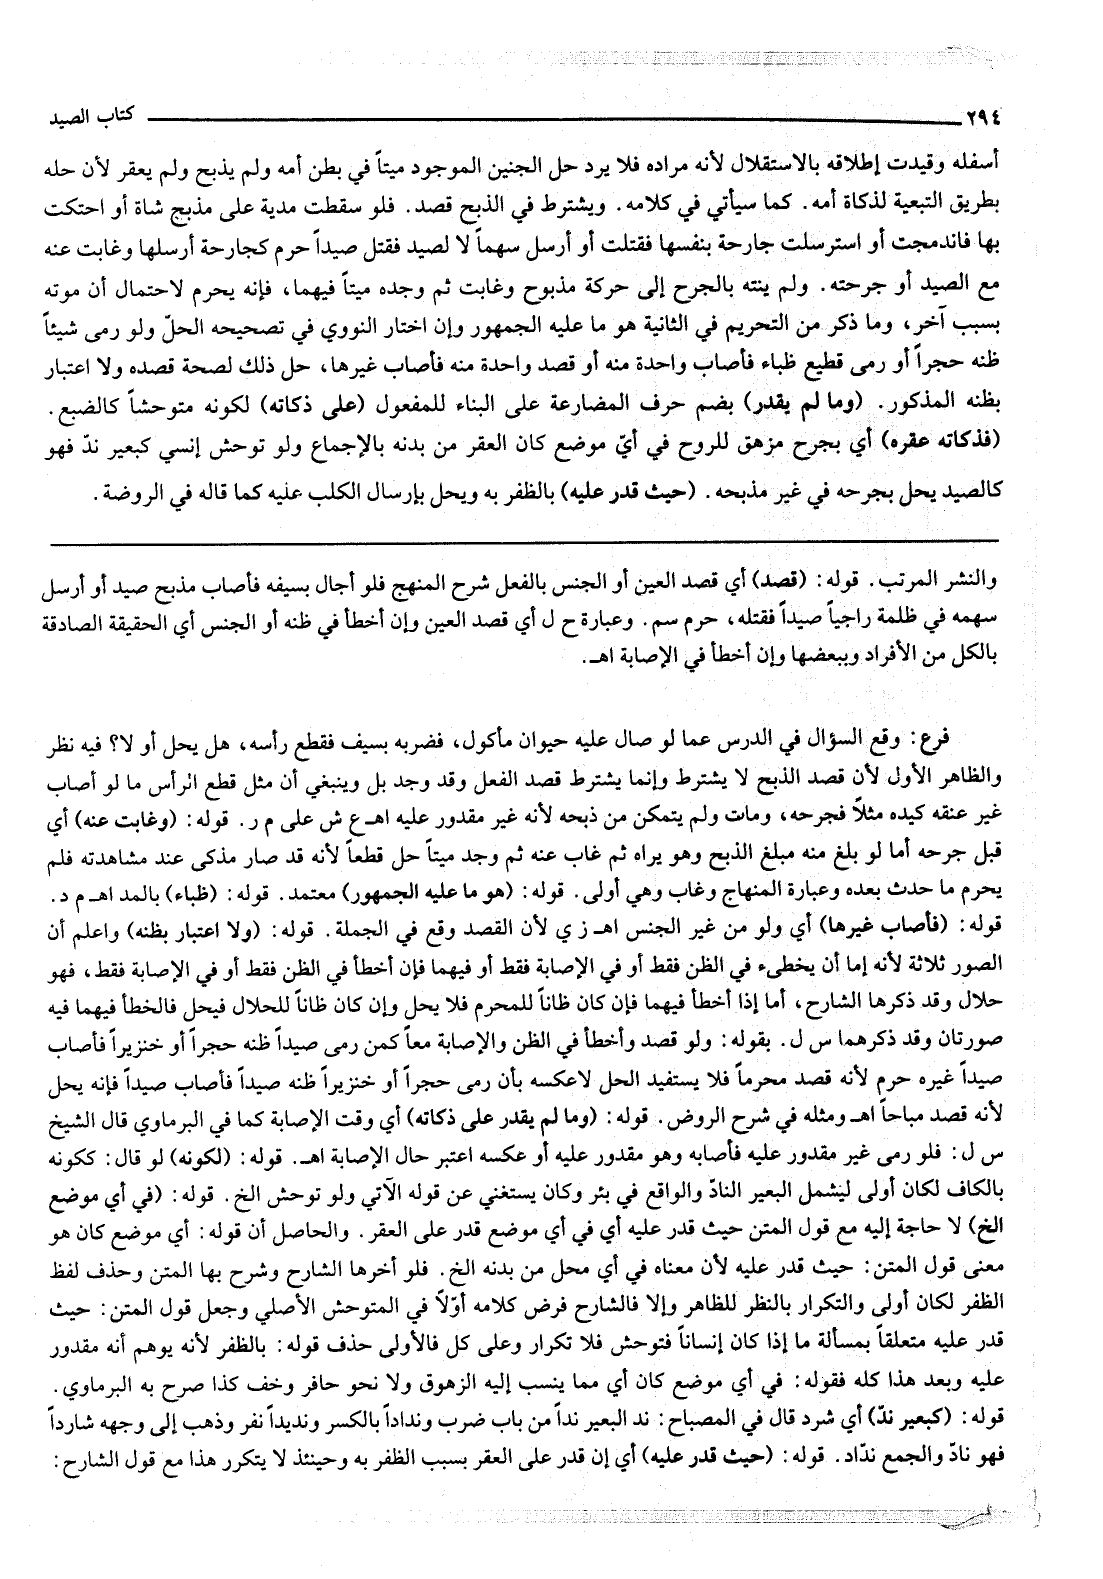 ٢٩٤ كتاب الصيد
أسفله وقيدت إطلاقه بالاستقلال لأنه مراده فلا يرد حل الجنين الموجود ميتاً في بطن أمه ولم يذبح ولم يعقر لأن حله
بطريق التبعية لذكاة أمه. كما سيأتي في كلامه. ويشترط في الذبح قصد. فلو سقطت مدية على مذبح شاة أو احتكت
بها فاندمجت أو استرسلت جارحة بنفسها فقتلت أو أرسل سهماً لا لصيد فقتل صيداً حرم كجارحة أرسلها وغابت عنه
مع الصيد أو جرحته. ولم ينته بالجرح إلى حركة مذبوح وغابت ثم وجده ميتاً فيهما، فإنه يحرم لاحتمال أن موته
بسبب آخر، وما ذكر من التحريم في الثانية هو ما عليه الجمهور وإن اختار النووي في تصحيحه الحلّ ولو رمى شيئاً
ظنه حجراً أو رمى قطيع ظباء فأصاب واحدة منه أو قصد واحدة منه فأصاب غيرها، حل ذلك لصحة قصده ولا اعتبار
بظنه المذكور. (وما لم يقدر) بضم حرف المضارعة على البناء للمفعول (على ذكاته) لكونه متوحشاً كالضبع.
(فذكاته عقره) أي بجرح مزهق للروح في أيّ موضع كان العقر من بدنه بالإجماع ولو توحش إنسي كبعير ندّ فهو
كالصيد يحل بجرحه في غير مذبحه. (حيث قدر عليه) بالظفر به ويحل بإرسال الكلب عليه كما قاله في الروضة.
والنشر المرتب. قوله: (قصد) أي قصد العين أو الجنس بالفعل شرح المنهج فلو أجال بسيفه فأصاب مذبح صيد أو أرسل
سهمه في ظلمة راجياً صيداً فقتله، حرم سم. وعبارة ح ل أي قصد العين وإن أخطأ في ظنه أو الجنس أي الحقيقة الصادقة
بالكل من الأفراد وببعضها وإن أخطأ في الإصابة اهـ.
فرع: وقع السؤال في الدرس عما لو صال عليه حيوان مأكول، فضربه بسيف فقطع رأسه، هل يحل أو لا؟ فيه نظر
والظاهر الأول لأن قصد الذبح لا يشترط وإنما يشترط قصد الفعل وقد وجد بل وينبغي أن مثل قطع الرأس ما لو أصاب
غير عنقه كيده مثلاً فجرحه، ومات ولم يتمكن من ذبحه لأنه غير مقدور عليه اهـ ع ش على م ر. قوله: (وغابت عنه) أي
قبل جرحه أما لو بلغ منه مبلغ الذبح وهو يراه ثم غاب عنه ثم وجد ميتاً حل قطعاً لأنه قد صار مذكى عند مشاهدته فلم
يحرم ما حدث بعده وعبارة المنهاج وغاب وهي أولى. قوله: (هو ما عليه الجمهور) معتمد. قوله: (ظباء) بالمد اهـ م د.
قوله: (فأصاب غيرها) أي ولو من غير الجنس اهـ ز ي لأن القصد وقع في الجملة. قوله: (ولا اعتبار بظنه) واعلم أن
الصور ثلاثة لأنه إما أن يخطىء في الظن فقط أو في الإصابة فقط أو فيهما فإن أخطأ في الظن فقط أو في الإصابة فقط، فهو
حلال وقد ذكرها الشارح، أما إذا أخطأ فيهما فإن كان ظاناً للمحرم فلا يحل وإن كان ظاناً للحلال فيحل فالخطأ فيهما فيه
صورتان وقد ذكرهما س ل. بقوله: ولو قصد وأخطأ في الظن والإصابة معاً كمن رمى صيداً ظنه حجراً أو خنزيراً فأصاب
صيداً غيره حرم لأنه قصد محرماً فلا يستفيد الحل لاعكسه بأن رمى حجراً أو خنزيراً ظنه صيداً فأصاب صيداً فإنه يحل
لأنه قصد مباحاً اهـ ومثله في شرح الروض. قوله: (وما لم يقدر على ذكاته) أي وقت الإصابة كما في البرماوي قال الشيخ
س ل: فلو رمى غير مقدور عليه فأصابه وهو مقدور عليه أو عكسه اعتبر حال الإصابة اهـ. قوله: (لكونه) لو قال: ككونه
بالكاف لكان أولى ليشمل البعير النادّ والواقع في بئر وكان يستغني عن قوله الآتي ولو توحش الخ. قوله: (في أي موضع
الخ) لا حاجة إليه مع قول المتن حيث قدر عليه أي في أي موضع قدر على العقر. والحاصل أن قوله: أي موضع كان هو
معنى قول المتن: حيث قدر عليه لأن معناه في أي محل من بدنه الخ. فلو أخرها الشارح وشرح بها المتن وحذف لفظ
الظفر لكان أولى والتكرار بالنظر للظاهر وإلا فالشارح فرض كلامه أوّلاً في المتوحش الأصلي وجعل قول المتن: حيث
قدر عليه متعلقاً بمسألة ما إذا كان إنساناً فتوحش فلا تكرار وعلى كل فالأولى حذف قوله: بالظفر لأنه يوهم أنه مقدور
عليه وبعد هذا كله فقوله: في أي موضع كان أي مما ينسب إليه الزهوق ولا نحو حافر وخف كذا صرح به البرماوي.
قوله: (كبعير ندّ) أي شرد قال في المصباح: ند البعير نداً من باب ضرب ونداداً بالكسر ونديداً نفر وذهب إلى وجهه شارداً
فهو نادّ والجمع ندّاد. قوله: (حيث قدر عليه) أي إن قدر على العقر بسبب الظفر به وحينئذ لا يتكرر هذا مع قول الشارح: